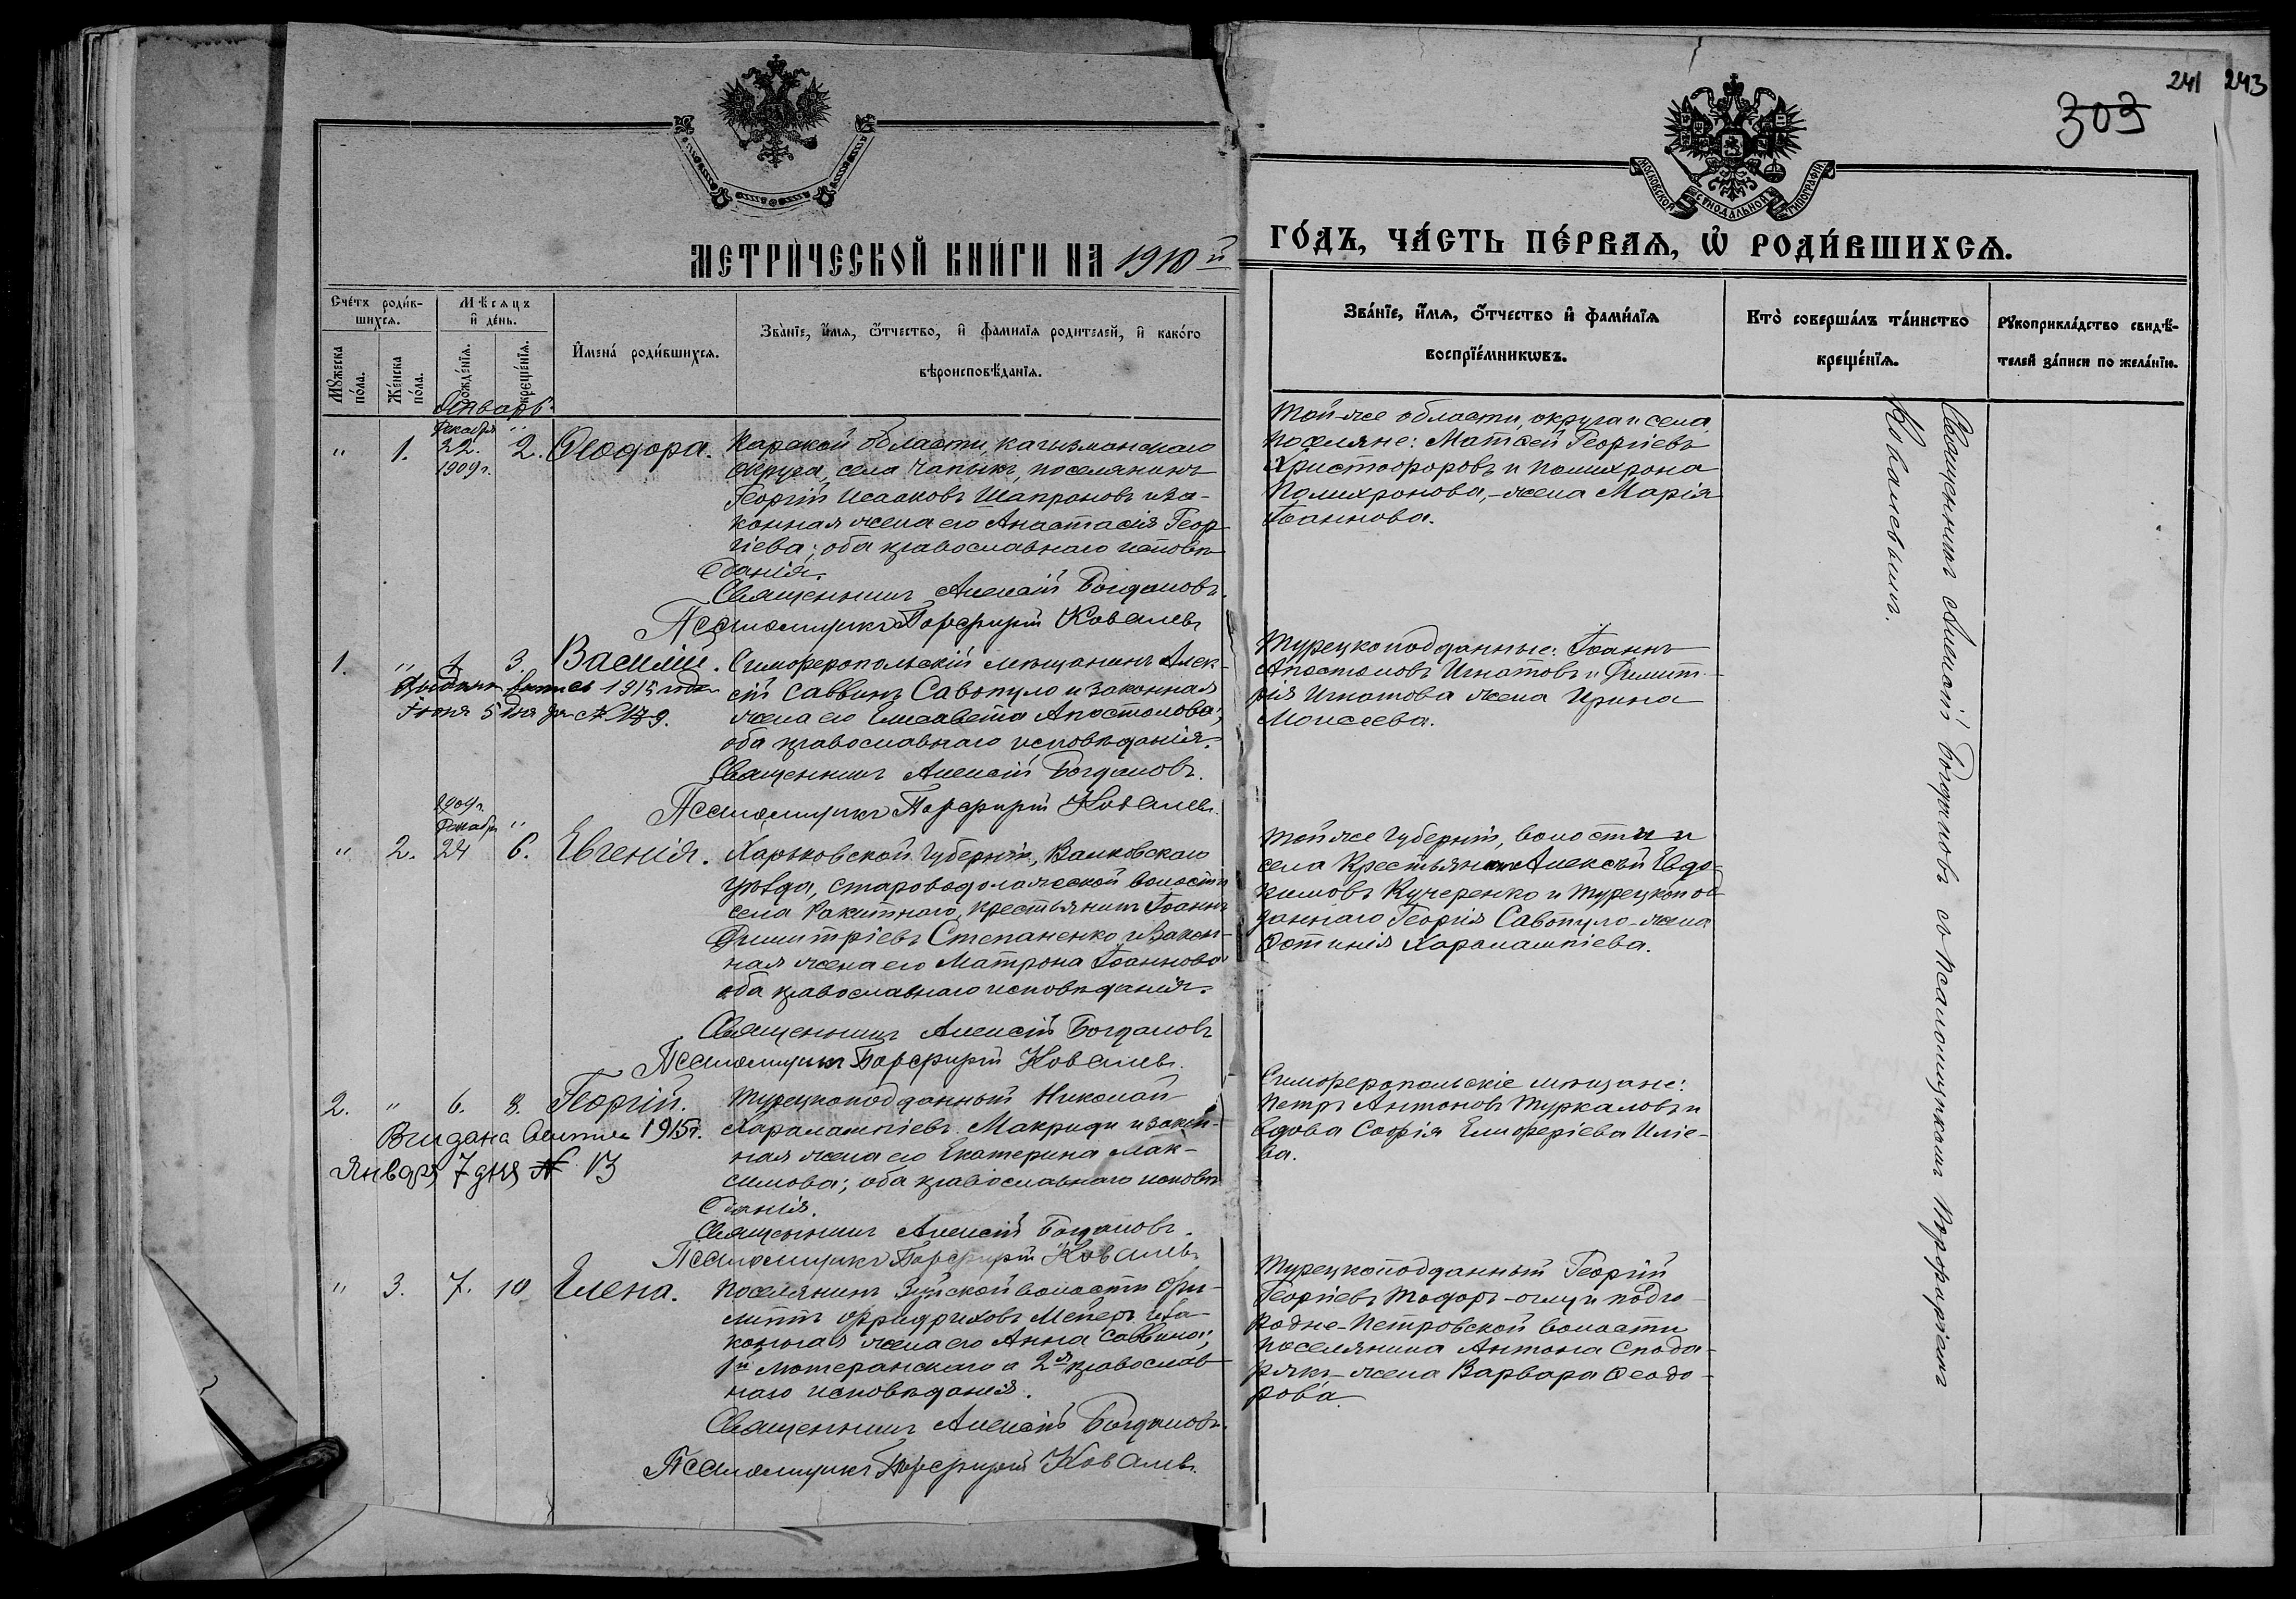 241 243
303
МОСКОВСКОЙ СѴНОДАЛЬНОЙ ТИПОГРАФІИ
МЕТРИ́ЧЕСКОЙ КНИ́ГИ НА 1910й ГО́ДЪ, ЧА́СТЬ ПЕ́РВАЯ, Ѽ РОДИ́ВШИХСЯ.
Сче́тъ роди́в-
шихся.
Мѣсяцъ
и҆ де́нь.
Мꙋжеска
по́ла.
Же́нска
по́ла.
рожде́нїя.
креще́нїя.
И҆мена́ роди́вшихся.
Зва́нїе, и҆́мя, ѻ҆́тчество, и҆ фами́лїя роди́телей, и҆ како́го
вѣроисповѣ́данїя.
Зва́нїе, и҆́мя, ѻ҆́тчество и҆ фами́лїя
воспрїе́мникѡвъ.
Кто̀ соверша́лъ та́инство
креще́нїя.
Рꙋкоприкла́дство свидѣ́-
телей за́писи по жела́нїю.
Январь.
Декабря "
" 1. 22. 2. Ѳеодора.
1909 г.
Карской области, кагизманскаго
округа, села Чапыкъ, поселянинъ
Георгій Исааковъ Шапрановъ и за-
конная жена его Анастасія Геор-
гіева; оба православнаго исповѣ-
данія.
Священникъ Алексій Богдановъ.
Псаломщикъ Порфирій Ковалевъ
Той-же области, округа и села
поселяне: Матѳей Георгіевъ
Христофоровъ и Полихрона
Полихронова,-жена Марія
Іоаннова.
Священникъ Алексій Богдановъ съ псаломщикомъ Порфиріемъ
Ковалевымъ.
1. " 1. 3. Василій.
Выдана выпись 1915 года
Іюня 5 дня за № 189.
Симферопольскій мѣщанинъ Алек-
сій Саввинъ Савопуло и законная
жена его Елисавета Апостолова;
оба православнаго исповѣданія.
Священникъ Алексій Богдановъ.
Псаломщикъ Порфирій Ковалевъ.
Турецкоподданные: Іоаннъ
Апостоловъ Игнатовъ и Димит-
рія Игнатова жена Ирина
Моисеева.
1909 г.
Декабр. "
" 2. 24 6. Евгенія.
Харьковской губерніи, Валковскаго
уѣзда, староводолажской волости
села Ракитнаго, крестьянинъ Іоаннъ
Димитріевъ Степаненко и закон-
ная жена его Матрона Іоаннова
оба православнаго исповѣданія.
Священникъ Алексій Богдановъ
Псаломщикъ Порфирій Ковалевъ.
Той же губерніи, волости и
села крестьянинъ Алексѣй Евдо-
кимовъ Кучеренко и турецкопод-
даннаго Георгія Савопуло-жена
Фотинія Харалампіева.
2. " 6. 8. Георгій.
Выдана выпись 1915 г.
Января 7 дня № 13
Турецкоподданный Николай
Харалампіевъ Макриди и закон-
ная жена его Екатерина Мак-
симова; оба православнаго исповѣ-
данія.
Священникъ Алексій Богдановъ.
Псаломщикъ Порфирій Ковалевъ
Симферопольскіе мѣщане:
Петръ Антоновъ Туркаловъ и
вдова Софія Елиферіева Иліе-
ва.
" 3. 7. 10 Елена.
Поселянинъ Зуйской волости Фи-
липпъ Фридриховъ Мейеръ и за-
конная жена его Анна Саввина;
1й лютеранскаго а 2я православ-
наго исповѣданія.
Священникъ Алексій Богдановъ.
Псаломщикъ Порфирій Ковалевъ.
Турецкоподданный Георгій
Георгіевъ Тодоръ-оглу и подго-
родне-Петровской волости
поселянина Антона Спода-
рякъ-жена Варвара Ѳеодо-
рова.